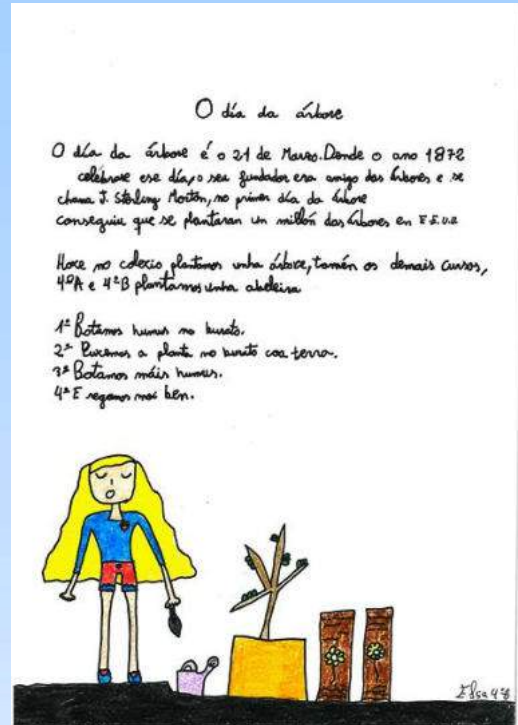 O día da árbore
O día da árbore é o 21 de Marzo. Dende o ano 1872
celébrase ese día, o seu fundador era amigo das árbores e se
chama J. Sterling Morton, no primer día da árbore
conseguiu que se plantaran un millón das árbores en E.E.U.U
Hoxe no colexio plantamos unha árbore, tamén os demais cursos,
4ºA e 4ºB plantamos unha abeleira
1º Botamos humus no burato.
2º Puxemos a planta no burato coa terra.
3º Botamos máis humus.
4º E regamos moi ben.
Elsa 4ºB